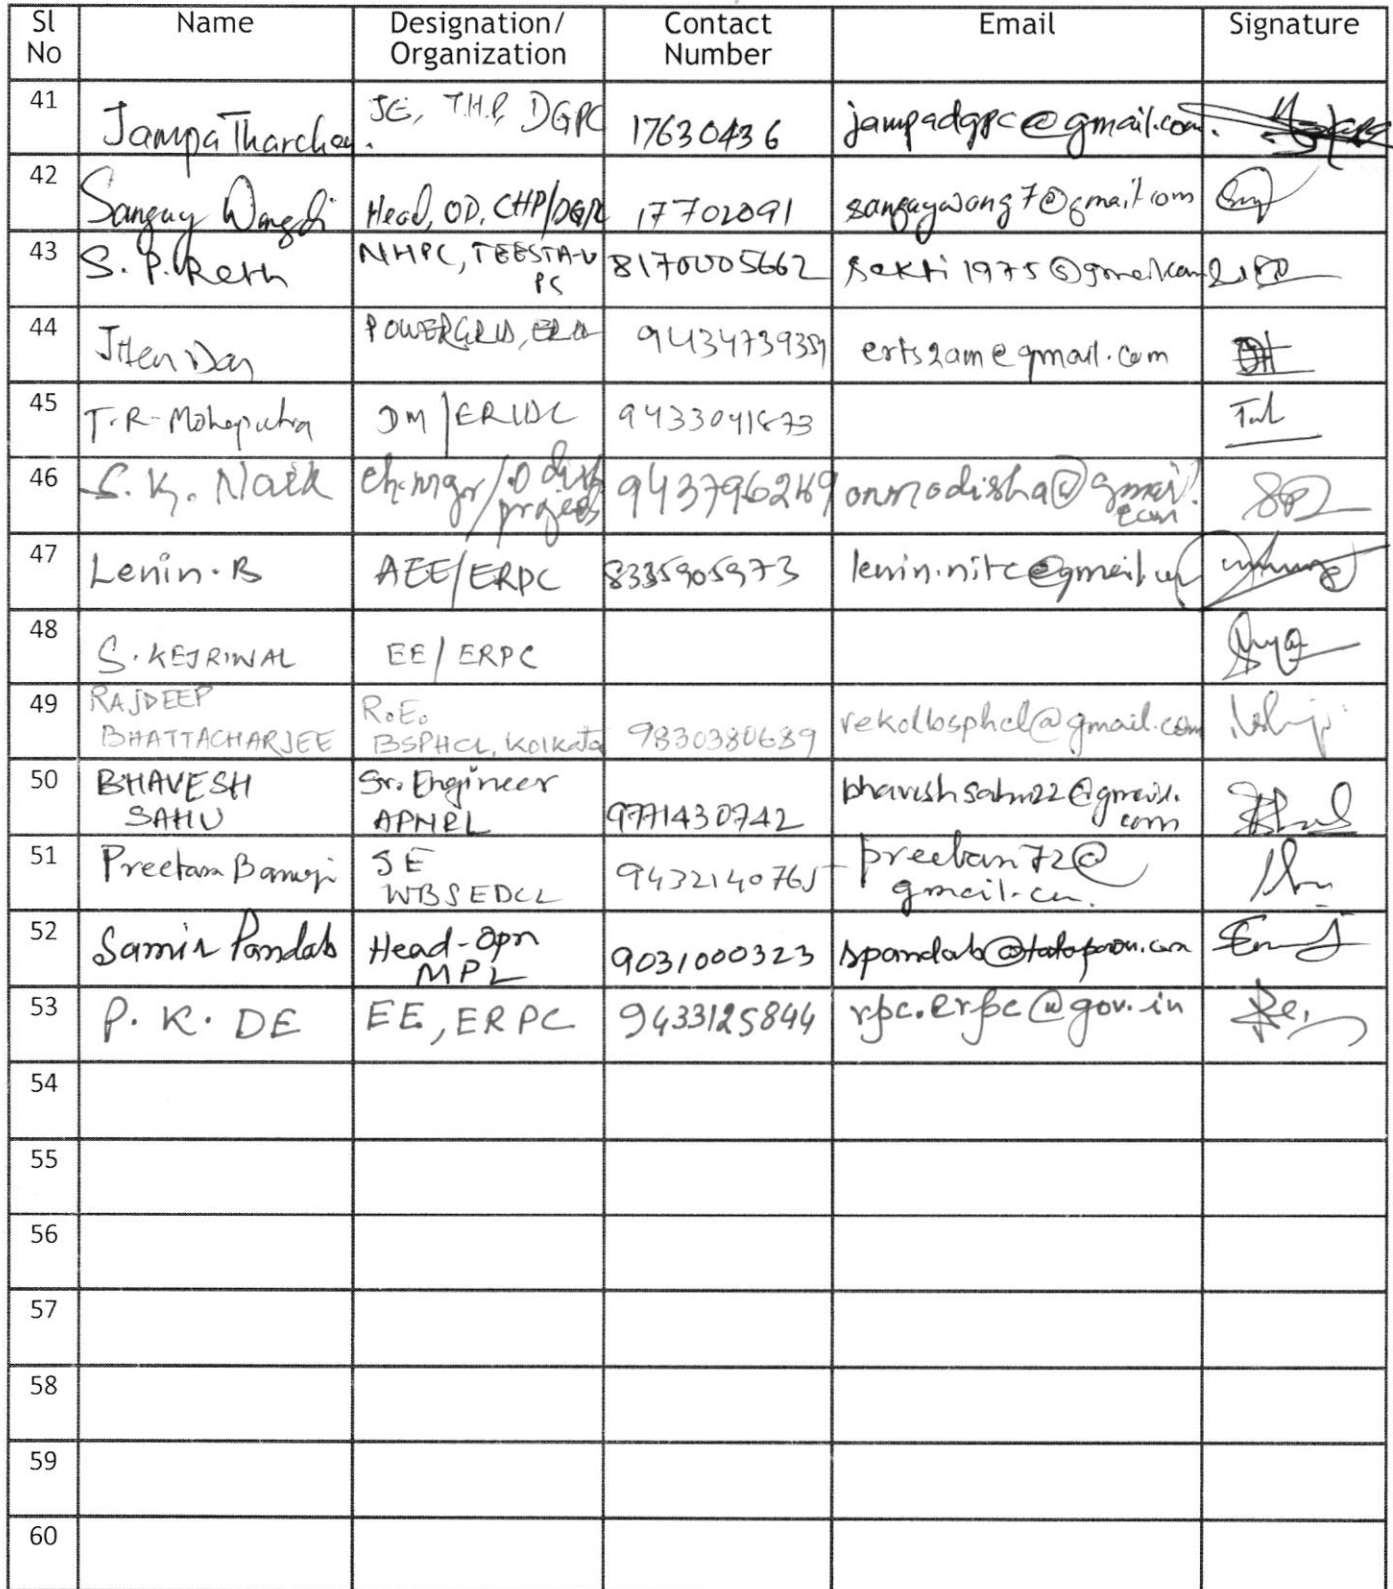 Sl No Name Designation/ Organization Contact Number Email Signature
41 Jampa Tharchen. JE, THP, DGPC 17630436 jampadgpc@gmail.com.
42 Sangay Wangdi Head, OD, CHP/DGPC 17702091 sangaywong7@gmail.com
43 S. P. Rath NHPC, TEESTA-V PS 8170005662 sakti1975@gmail.com
44 Jiten Das POWERGRID, 9434739359 erts2am@gmail.com
45 T.R. Mohapatra DM/ERLDC
46 S. K. Naik Ch. mgr/Odisha projects onmodisha@gmail.com
47 Lenin.B AEE/ERPC 8335905973 lenin.nitc@gmail.com
48 S. KEJRIWAL EE/ERPC
49 RAJDEEP BHATTACHARJEE R.E. BSPHCL, Kolkata 9830380689 rekolbsphcl@gmail.com
50 BHAVESH SAHU Sr. Engineer APNRL 9771430742 bhaveshsahu22@gmail.com
51 Preetam Banerji SE WBSEDCL 9432140765 preetban72@gmail.com.
52 Samir Pandab Head-Opn MPL 9031000323 spandab@tatapower.com
53 P. K. DE EE, ERPC 9433125844 rpc.erpc@gov.in
54
55
56
57
58
59
60